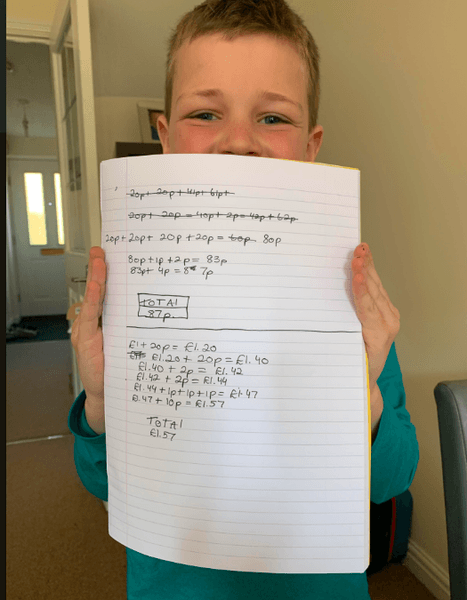 20p + 20p + 41p + 61p +
20p + 20p = 40p + 2p = 42p + 62p
20p + 20p + 20p + 20p = 60p 80p
80p + 1p + 2p = 83p
83p + 4p = 8 7p
TOTAL
87p.
£1 + 20p = £1.20
£1.20 + 20p = £1.40
£1.40 + 2p = £1.42
£1.42 + 2p = £1.44
£1.44 + 1p + 1p + 1p = £1.47
£1.47 + 10p = £1.57
TOTAL
£1.57